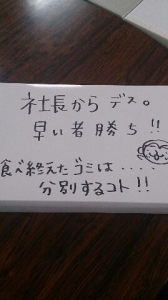 社長から デス。
早い者勝ち!!
食べ終えたゴミは....
分別するコト!!